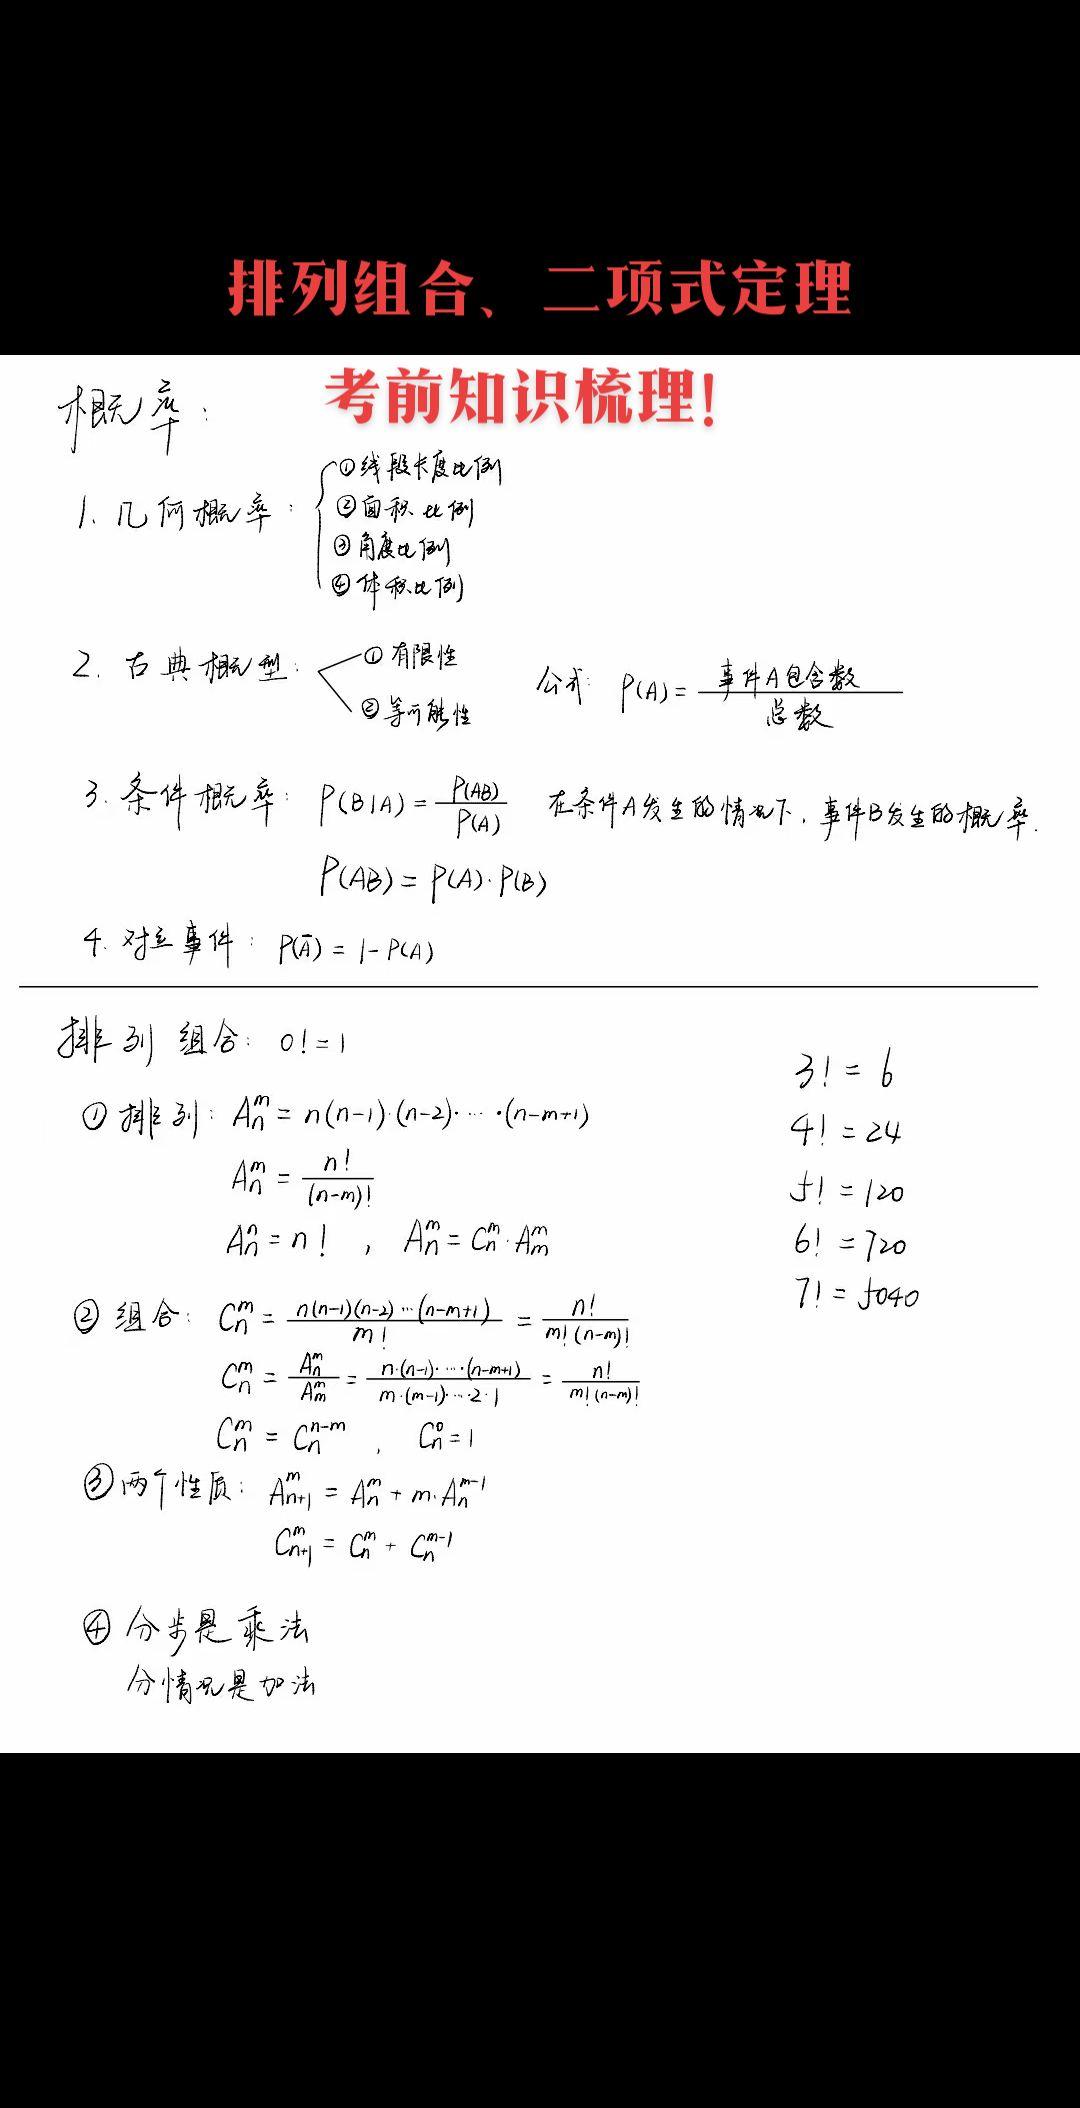 排列组合、二项式定理
考前知识梳理!
概率:
1. 几何概率: ①线段长度比例
②面积比例
③角度比例
④体积比例
2. 古典概型: ①有限性
②等可能性
公式: P(A) = 事件A包含数 / 总数
3. 条件概率: P(B|A) = P(AB) / P(A) 在条件A发生的情况下, 事件B发生的概率.
P(AB) = P(A)·P(B)
4. 对立事件: P(Ā) = 1 - P(A)
排列组合: 0! = 1
① 排列: Aₙᵐ = n(n-1)·(n-2)· … ·(n-m+1)
Aₙᵐ = n! / (n-m)!
Aₙⁿ = n! , Aₙᵐ = Cₙᵐ·Aₘᵐ
3! = 6
4! = 24
5! = 120
6! = 720
7! = 5040
② 组合: Cₙᵐ = n(n-1)(n-2)…(n-m+1) / m! = n! / m!(n-m)!
Cₙᵐ = Aₙᵐ / Aₘᵐ = n·(n-1)·…·(n-m+1) / m·(m-1)·…·2·1 = n! / m!(n-m)!
Cₙᵐ = Cₙⁿ⁻ᵐ , Cₙ⁰ = 1
③ 两个性质: Aₙ₊₁ᵐ = Aₙᵐ + m·Aₙᵐ⁻¹
Cₙ₊₁ᵐ = Cₙᵐ + Cₙᵐ⁻¹
④ 分步是乘法
分情况是加法